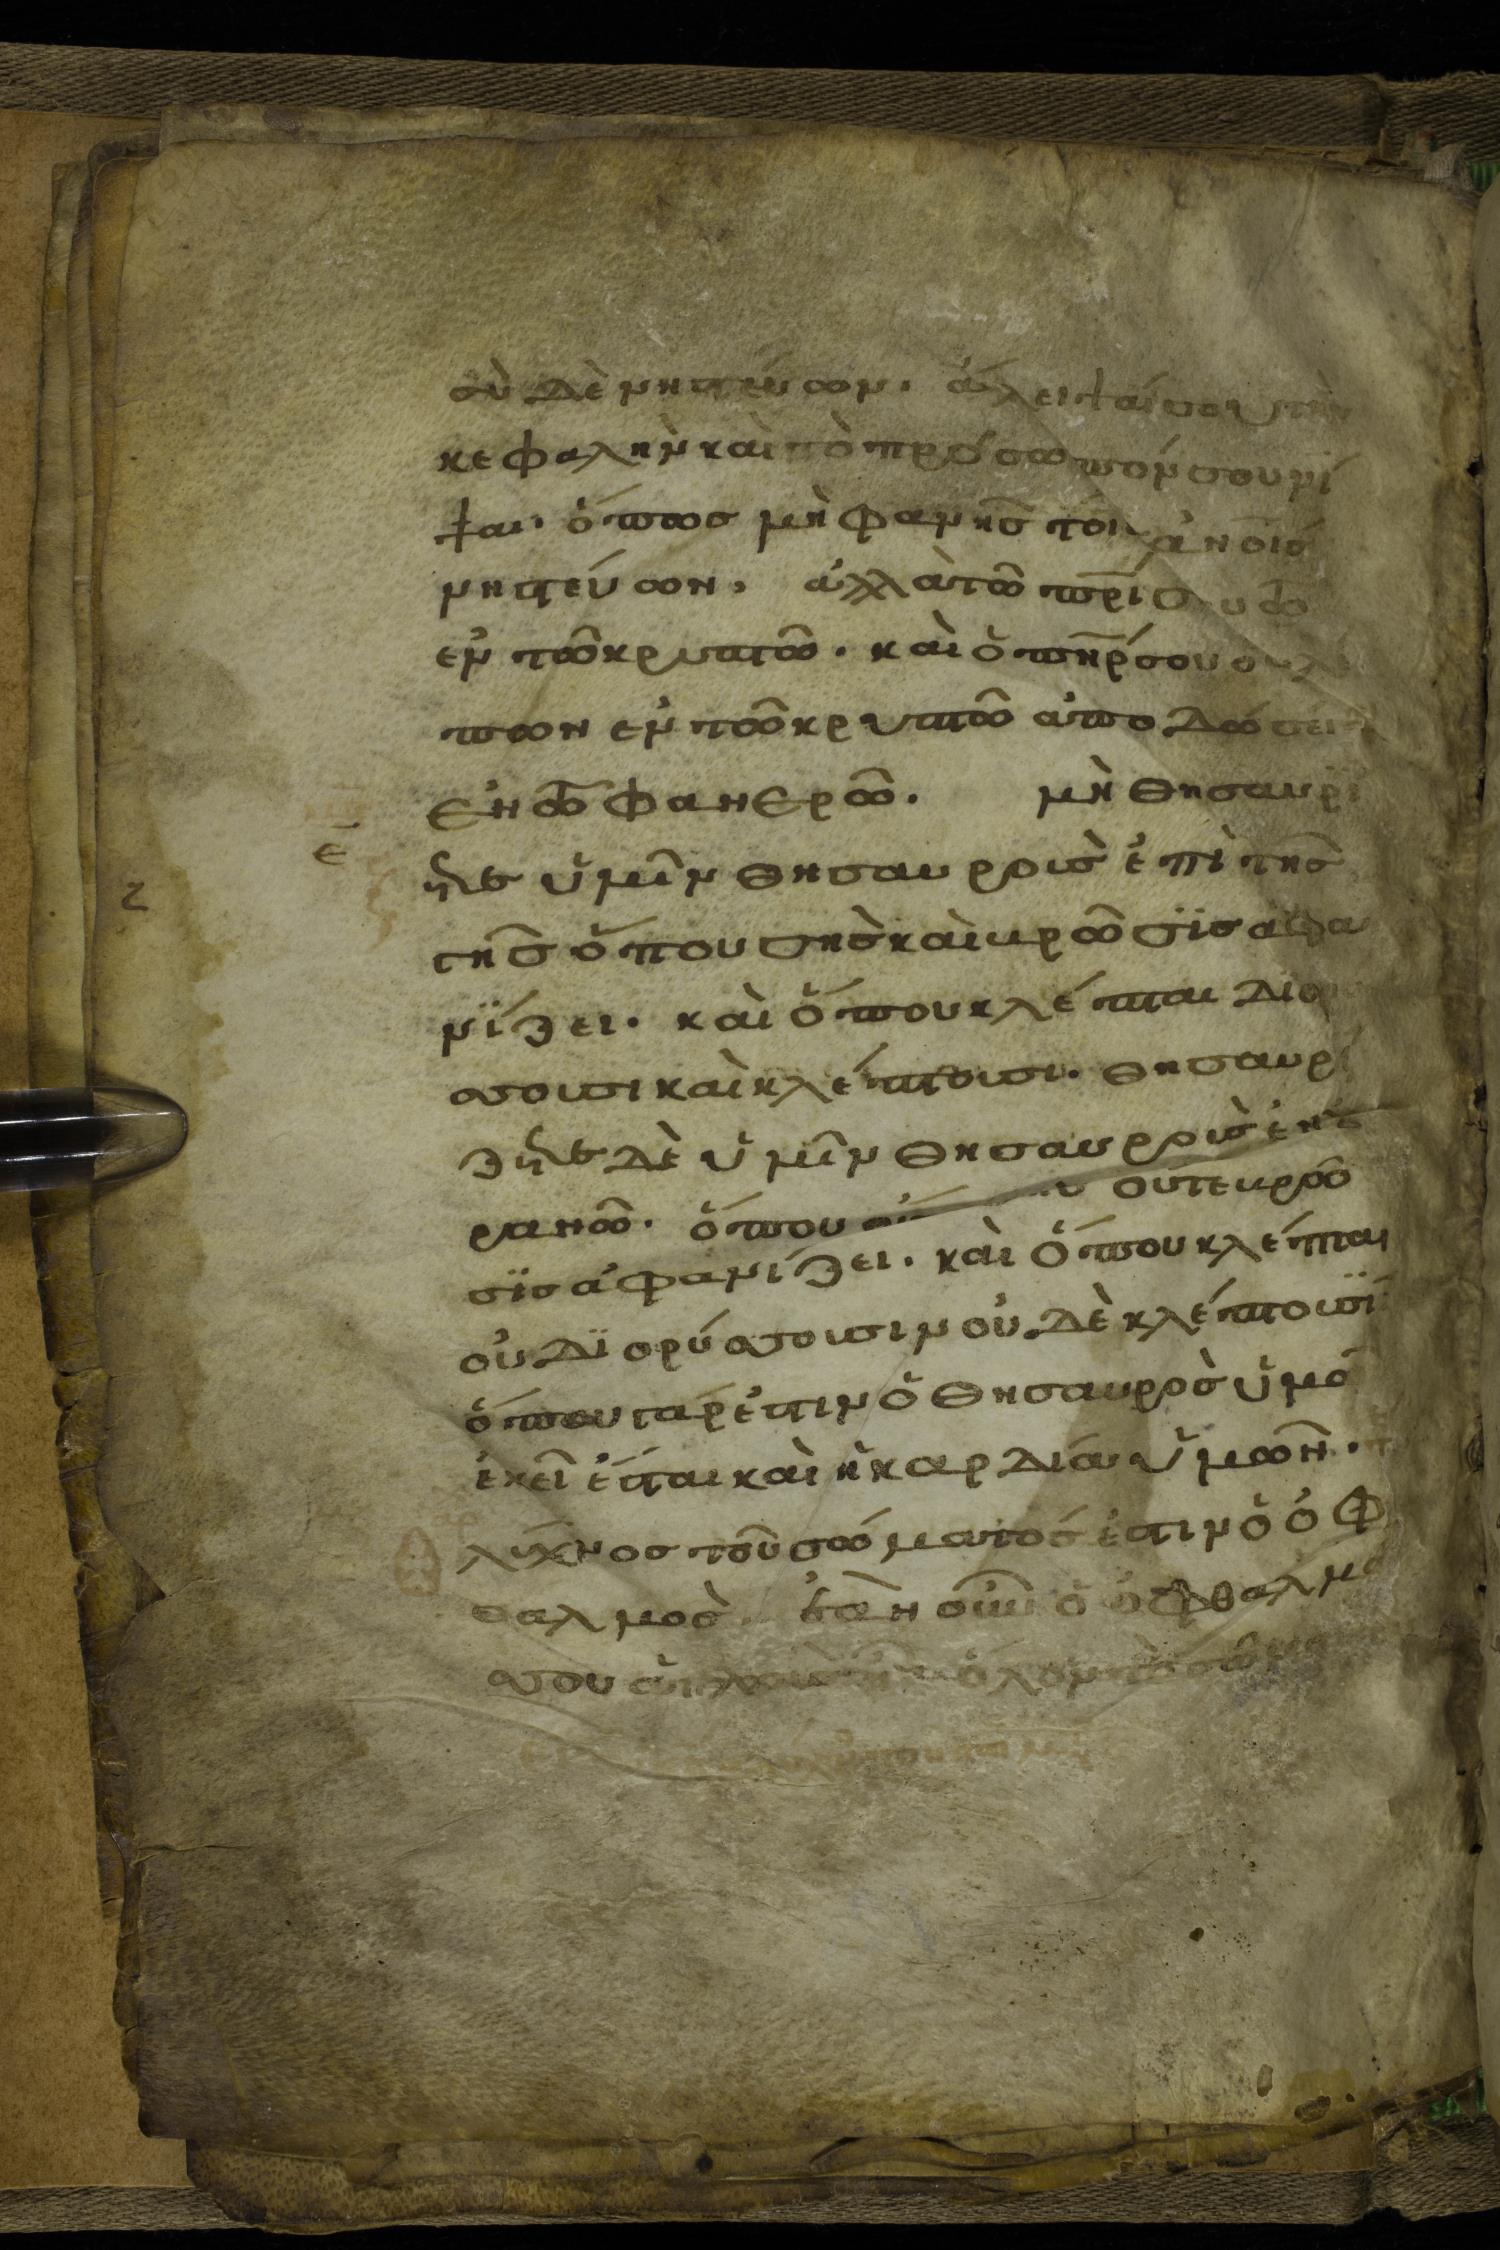 σὺ δὲ νηστεύων. ἄλειψαί σου τὴν
κεφαλὴν καὶ τὸ πρόσωπόν σου νί
ψαι. ὅπως μὴ φανῆς τοῖς ἀν̅οις
νηστεύων, ἀλλὰ τῶ πρ̅ι σου τῶ
ἐν τῶ κρυπτῶ. καὶ ὁ πη̅ρ σου ὁ βλέ
πων ἐν τῶ κρυπτῶ ἀποδώσει
ἐν τῶ φανερῶ. μὴ θησαυρί
ζετε ὑμῖν θησαυροὺς ἐπὶ τῆς
γῆς ὅπου σὴς καὶ βρῶσϊς ἀφα
νΐζει. καὶ ὅπου κλέπται διορύ
σσουσι καὶ κλέπτουσι. θησαυρί
ζετε δὲ ὑμῖν θησαυροὺς ἐν οὐ
ρανῶ. ὅπου οὔτε σὴς οὔτε βρῶ
σϊς ἀφανίζει. καὶ ὅπου κλέπται
οὐ δϊορύσσουσιν οὐδὲ κλέπτουσϊ
ὅπου γάρ ἐστιν ὁ θησαυρὸς ὑμῶ
ἐκεῖ ἔσται καὶ ἡ καρδία ὑμῶν.
λύχνος τοῦ σώματός ἐστιν ὁ ὀφ
θαλμὸς. ἐὰν οὖν ὁ ὀφθαλμό
σου ἁπλοῦς ἦ ὅλον τὸ σῶμα